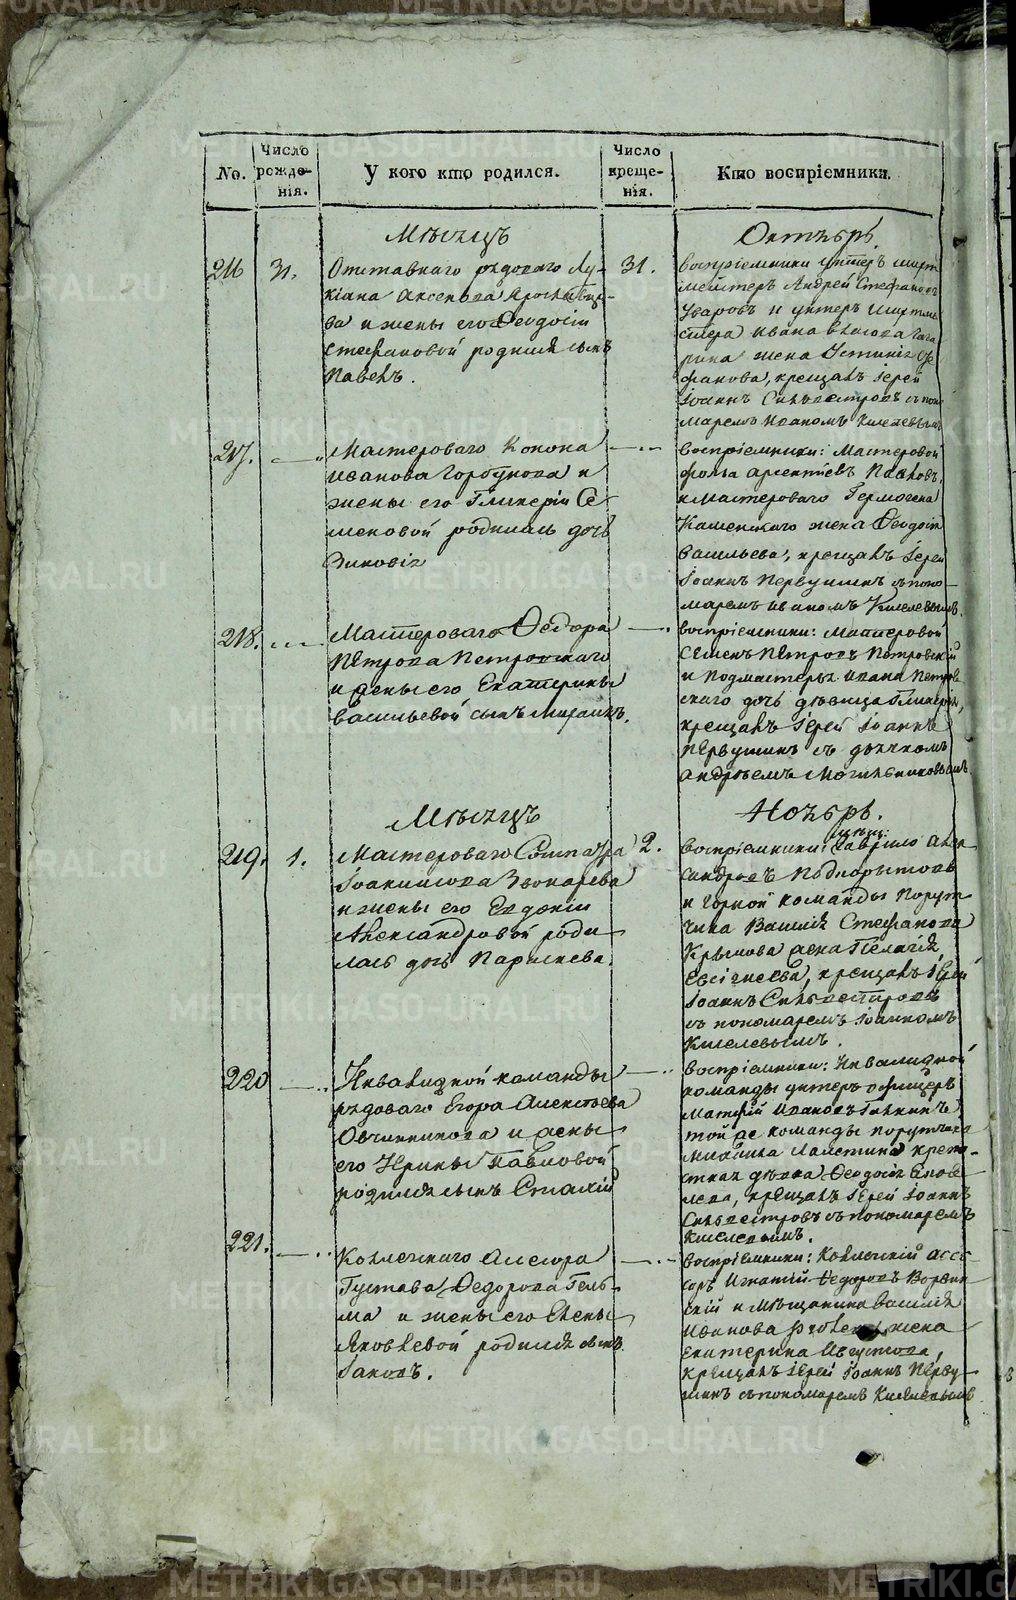 No.
Число рожде-нія.
У кого кто родился.
Число креще-нія.
Кто воспріемники.
Мѣсяцъ
Октябрь.
216
31.
Отставнаго рядоваго Лу-
кіана Аксенова
ва и жены его Ѳеодосіи
Стефановой родился сынъ
Павелъ.
31.
Воспріемники: унтеръ шихт
мейстеръ Андрей Стефановъ
Уваровъ и унтеръ шихтме
стера Ивана Власова Гага
рина жена Устинія Сте
фанова, крещалъ Іерей
Іоаннъ Сильвестровъ съ поно
маремъ Иваномъ Киселевымъ
217.
Мастероваго Конона
Иванова Горбунова и
жены его Гликеріи Се
меновой родилась дочь
Зиновія
Воспріемники: Мастеровой
Фока Арсентіевъ
и мастероваго Гермогена
Каменскаго жена Ѳеодосія
Васильева, крещалъ Іерей
Іоаннъ Первушинъ съ поно-
маремъ Иваномъ Киселевымъ.
218.
Мастероваго Ѳедора
Петрова Петровскаго
и жены его Екатерины
Васильевой сынъ Михаилъ.
Воспріемники: Мастеровой
Семенъ Петровъ Петровскій
и Подмастерья Ивана Петров
скаго дочь дѣвица Гликерія,
крещалъ Іерей Іоаннъ
Первушинъ съ дьячкомъ
Андреемъ Могильниковымъ
Мѣсяцъ
Ноябрь.
219.
1.
Мастероваго Сосипатра
Іоакимова Звонарева
и жены его Евдокіи
Александровой роди
лась дочь Параскева.
2.
Воспріемники: Гаврило Алек
сандровъ Подкорытовъ
и Горной команды Порут
чика Василія Стефанова
Крымова жена Пелагія
Евсигнеева, крещалъ Іерей
Іоаннъ Сильвестровъ
съ пономаремъ Іоанномъ
Киселевымъ.
220
Инвалидной команды
рядоваго Егора Алексѣева
Овчинникова и жены
его Ирины Павловой
родился сынъ Стахій
Воспріемники: Инвалидной
команды унтеръ офицеръ
Матфій Ивановъ Галкинъ,
той же команды порутчика
Михаила крепо-
стная дѣвка Ѳеодосія Яков
лева, крещалъ Іерей Іоаннъ
Сильвестровъ съ пономаремъ
Киселевымъ.
221.
Коллежскаго Асесора
Густава Ѳедорова Гель-
ма и жены его Елены
Яковлевой родился сынъ
Іаковъ.
Воспріемники: Коллежскій асес
соръ Игнатій Ѳедоровъ Ворвин
скій и мѣщанина Василія
Иванова жена
Екатерина Августова,
крещалъ Іерей Іоаннъ Перву
шинъ съ пономаремъ Киселевымъ
METRIKI.GASO-URAL.RU